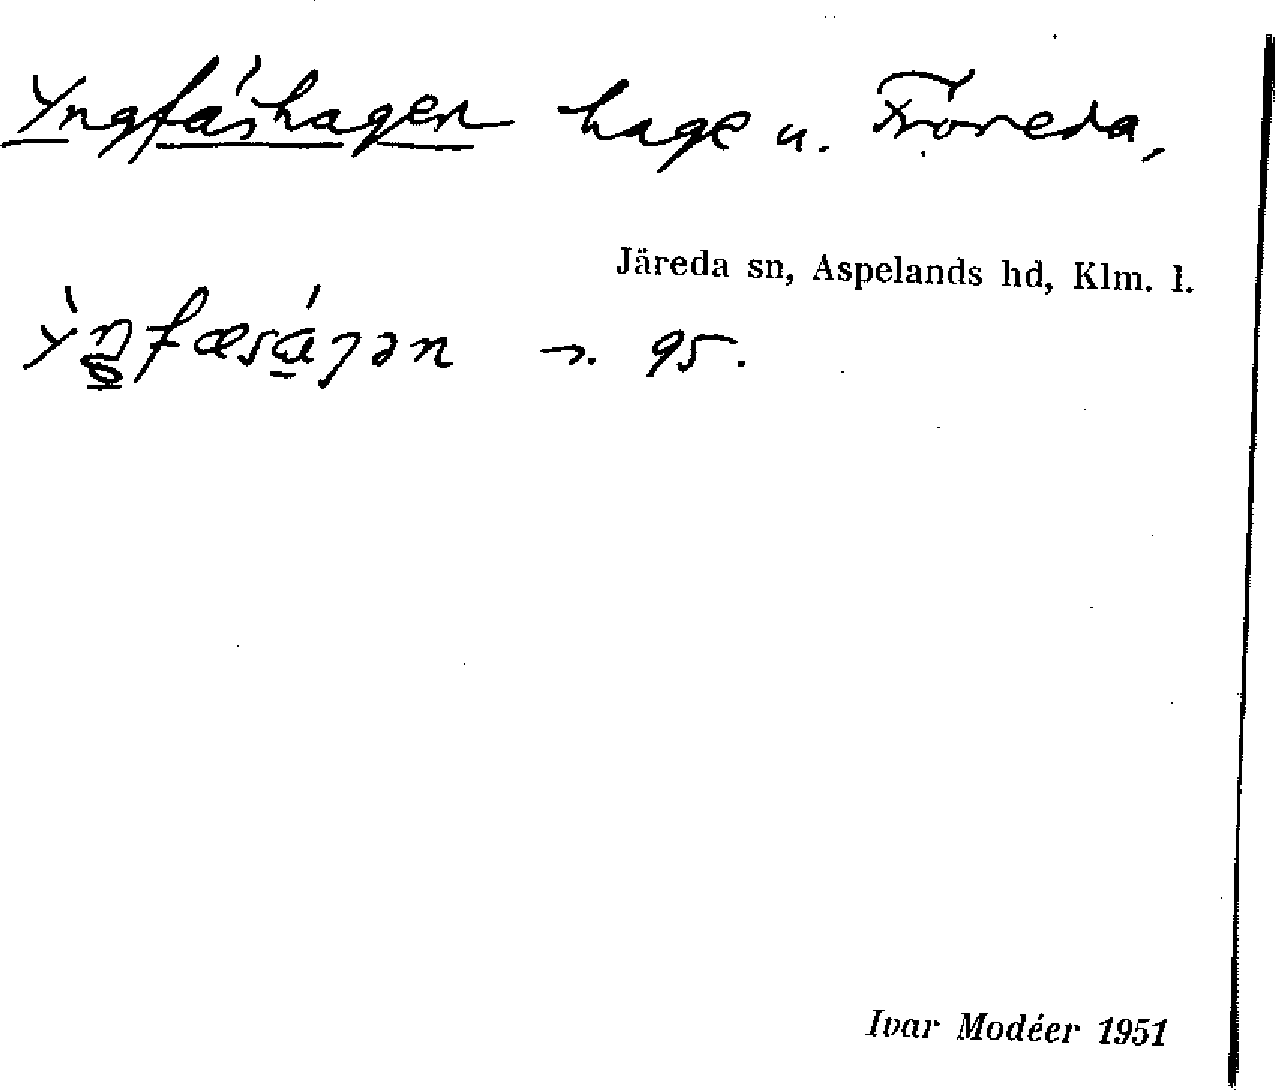 Yngfäshagen hage u. Fröreda,
Järeda sn, Aspelands hd, Klm. l.
95.
Ivar Modéer 1951